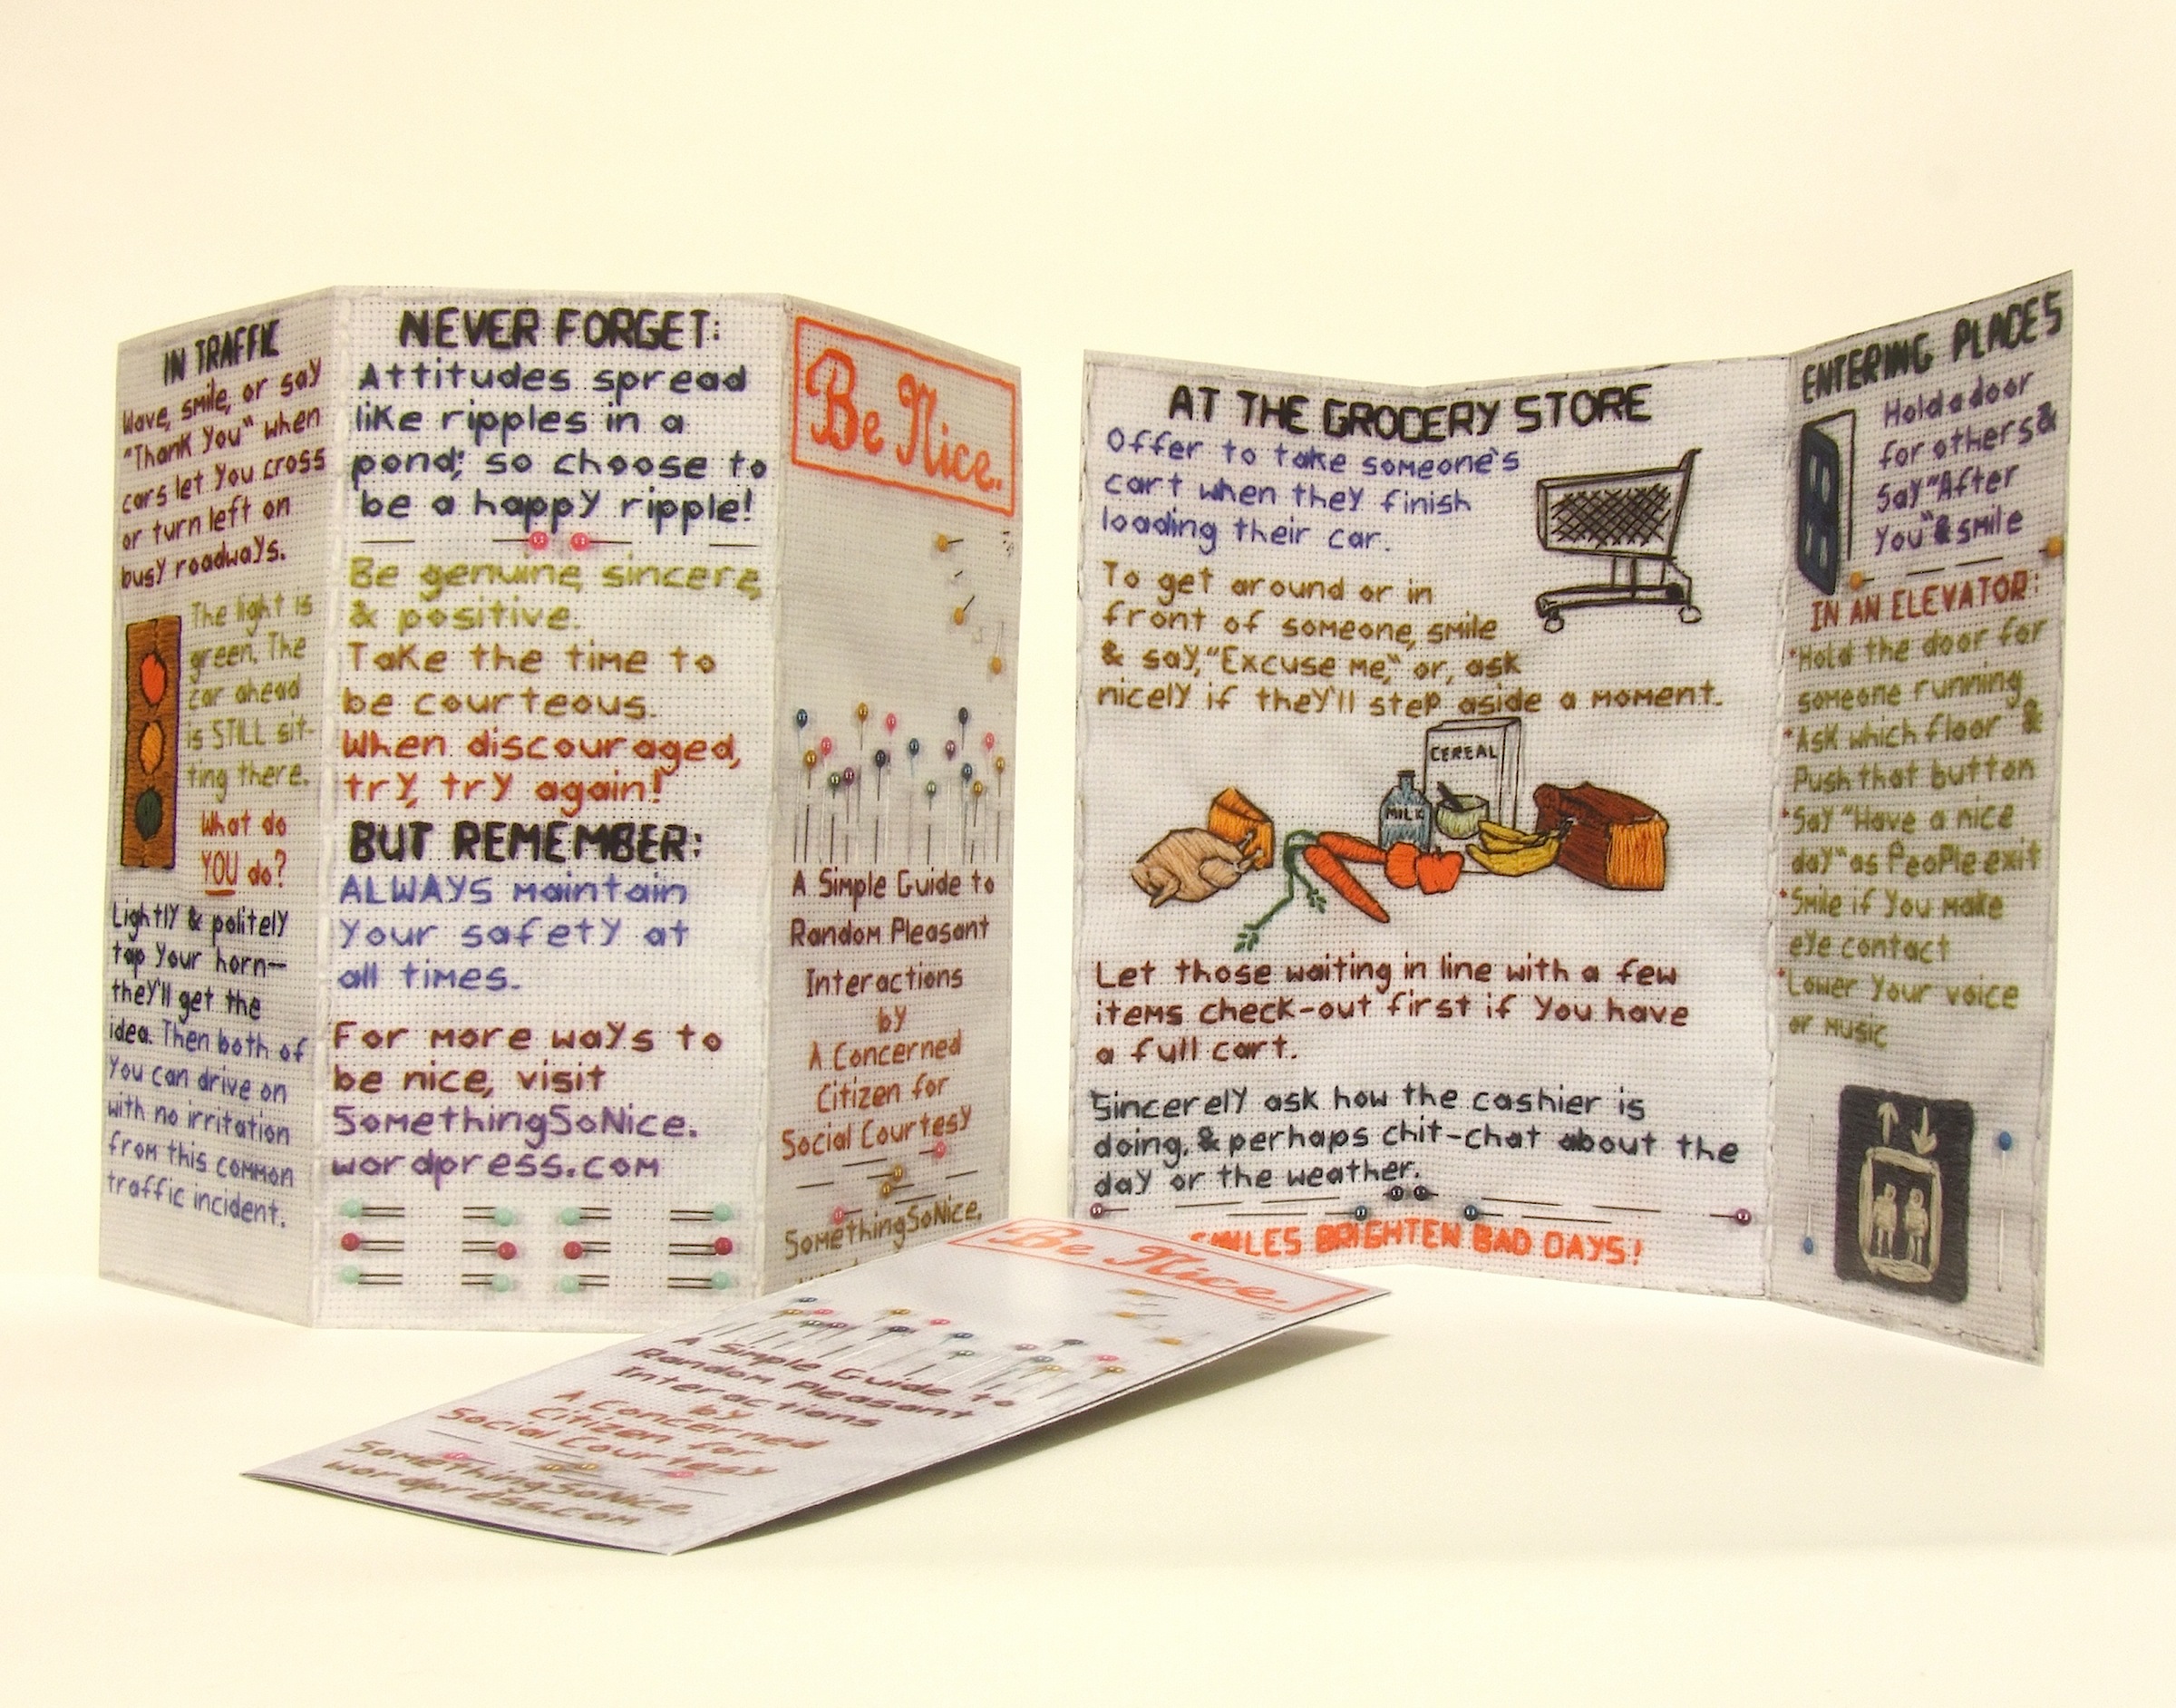 IN TRAFFIC
Wave, smile, or say
"Thank You" when
cars let you cross
or turn left on
busy roadways.
The light is
green. The
car ahead
is STILL sit-
ting there.
What do
YOU do?
Lightly & politely
tap your horn—
they'll get the
idea. Then both of
you can drive on
with no irritation
from this common
traffic incident.
NEVER FORGET:
Attitudes spread
like ripples in a
pond; so choose to
be a happy ripple!
Be genuine, sincere,
& positive.
Take the time to
be courteous.
When discouraged,
try, try again!
BUT REMEMBER:
ALWAYS maintain
your safety at
all times.
For more ways to
be nice, visit
SomethingSoNice.
wordpress.com
Be Nice.
A Simple Guide to
Random Pleasant
Interactions
by
A Concerned
Citizen for
Social Courtesy
SomethingSoNice.
AT THE GROCERY STORE
Offer to take someone's
cart when they finish
loading their car.
To get around or in
front of someone, smile
& say, "Excuse me," or, ask
nicely if they'll step aside a moment.
CEREAL
MILK
Let those waiting in line with a few
items check-out first if you have
a full cart.
Sincerely ask how the cashier is
doing, & perhaps chit-chat about the
day or the weather.
SMILES BRIGHTEN BAD DAYS!
ENTERING PLACES
Hold a door
for others &
say "After
you" & smile
IN AN ELEVATOR:
*Hold the door for
someone running
*Ask which floor &
push that button
*Say "Have a nice
day" as people exit
*Smile if you make
eye contact
*Lower your voice
or music
Be Nice.
A Simple Guide to
Random Pleasant
Interactions
by
A Concerned
Citizen for
Social Courtesy
SomethingSoNice.
wordpress.com